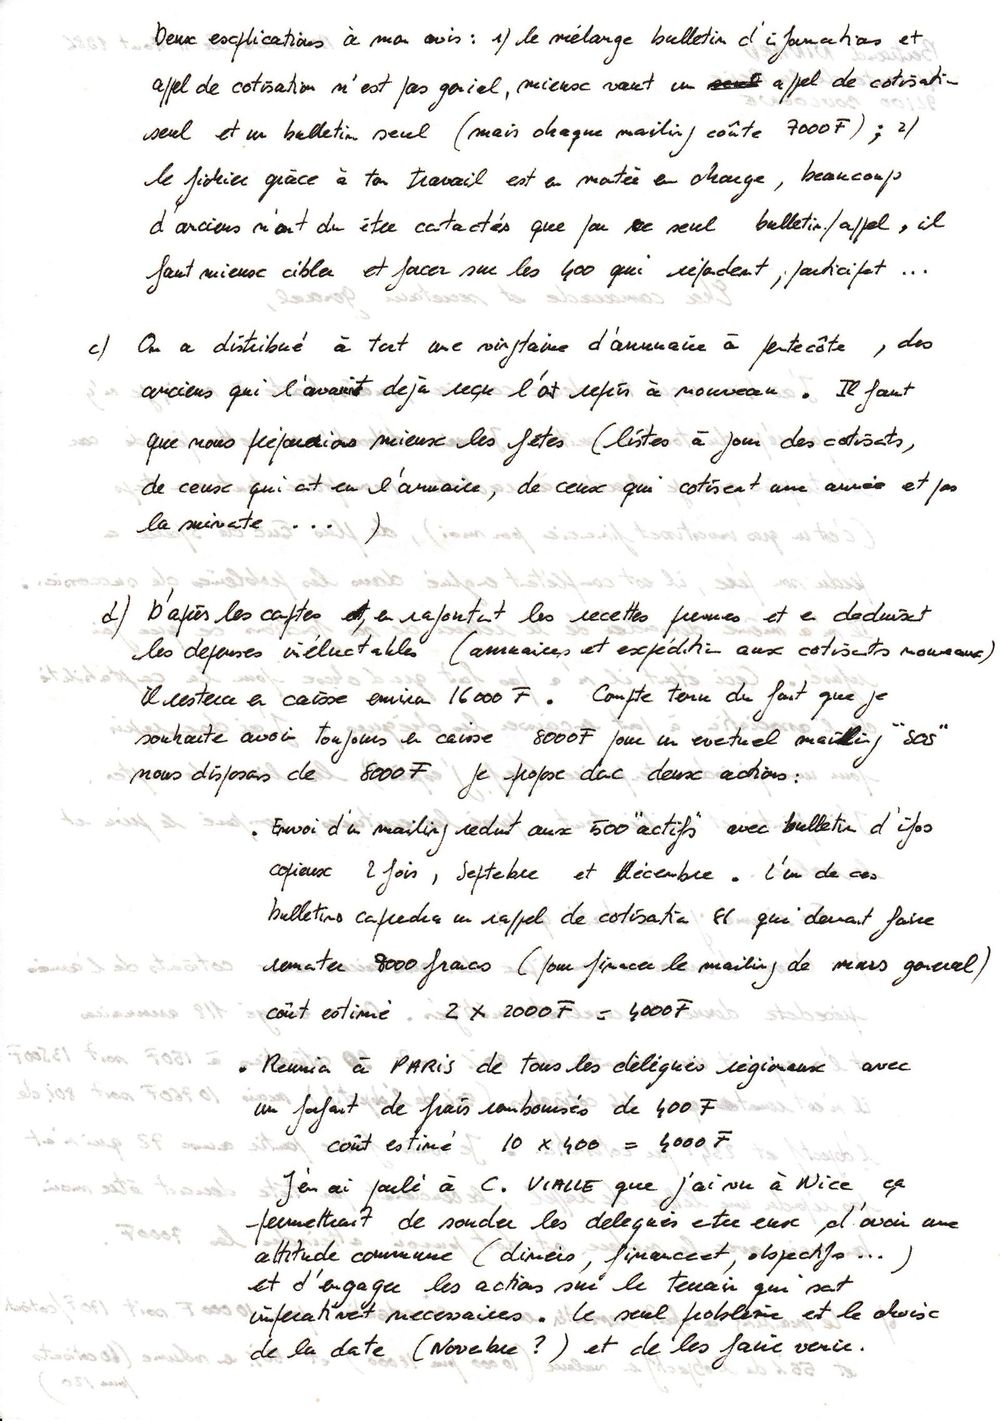 Deux explications à mon avis : 1) le mélange bulletin d'informations et
appel de cotisation n'est pas génial, mieux vaut un appel de cotisation
seul et un bulletin seul (mais chaque mailing coûte 7000F) ; 2)
le fichier grâce à ton travail est en montée en charge, beaucoup
d'anciens n'ont du être contactés que par ce seul bulletin/appel, il
faut mieux cibler et forcer sur les 400 qui répondent, participent ...
c) On a distribué à tort une vingtaine d'annuaire à pentecôte, des
anciens qui l'avaient déjà reçu l'ont repris à nouveau. Il faut
que nous préparions mieux les fêtes (listes à jour des cotisants,
de ceux qui ont eu l'annuaire, de ceux qui cotisent une année et pas
la suivante ... )
d) D'après les comptes et, en rajoutant les recettes prévues et en deduisant
les dépenses inéluctables (annuaires et expédition aux cotisants nouveaux)
il restera en caisse environ 16000 F. Compte tenu du fait que je
souhaite avoir toujours en caisse 8000F pour un eventuel mailing "SOS"
nous disposons de 8000F je propose donc deux actions :
. Envoi d'un mailing reduit aux 500 "actifs" avec bulletin d'infos
copieux 2 fois, Septembre et Décembre. L'un de ces
bulletins comprendra un rappel de cotisation 86 qui devrait faire
remonter 8000 francs (pour financer le mailing de mars general)
coût estimé 2 X 2000F = 4000F
. Reunion à PARIS de tous les délégués régionaux avec
un forfait de frais remboursés de 400F
coût estimé 10 x 400 = 4000F
J'en ai parlé à C. VIALLE que j'ai vu à Nice ça
permettrait de souder les delegués entre eux, d'avoir une
attitude commune (dîners, financement, objectifs ... )
et d'engager les actions sur le terrain qui sont
impérativement necessaires. Le seul problème est le choix
de la date (Novembre ?) et de les faire venir.